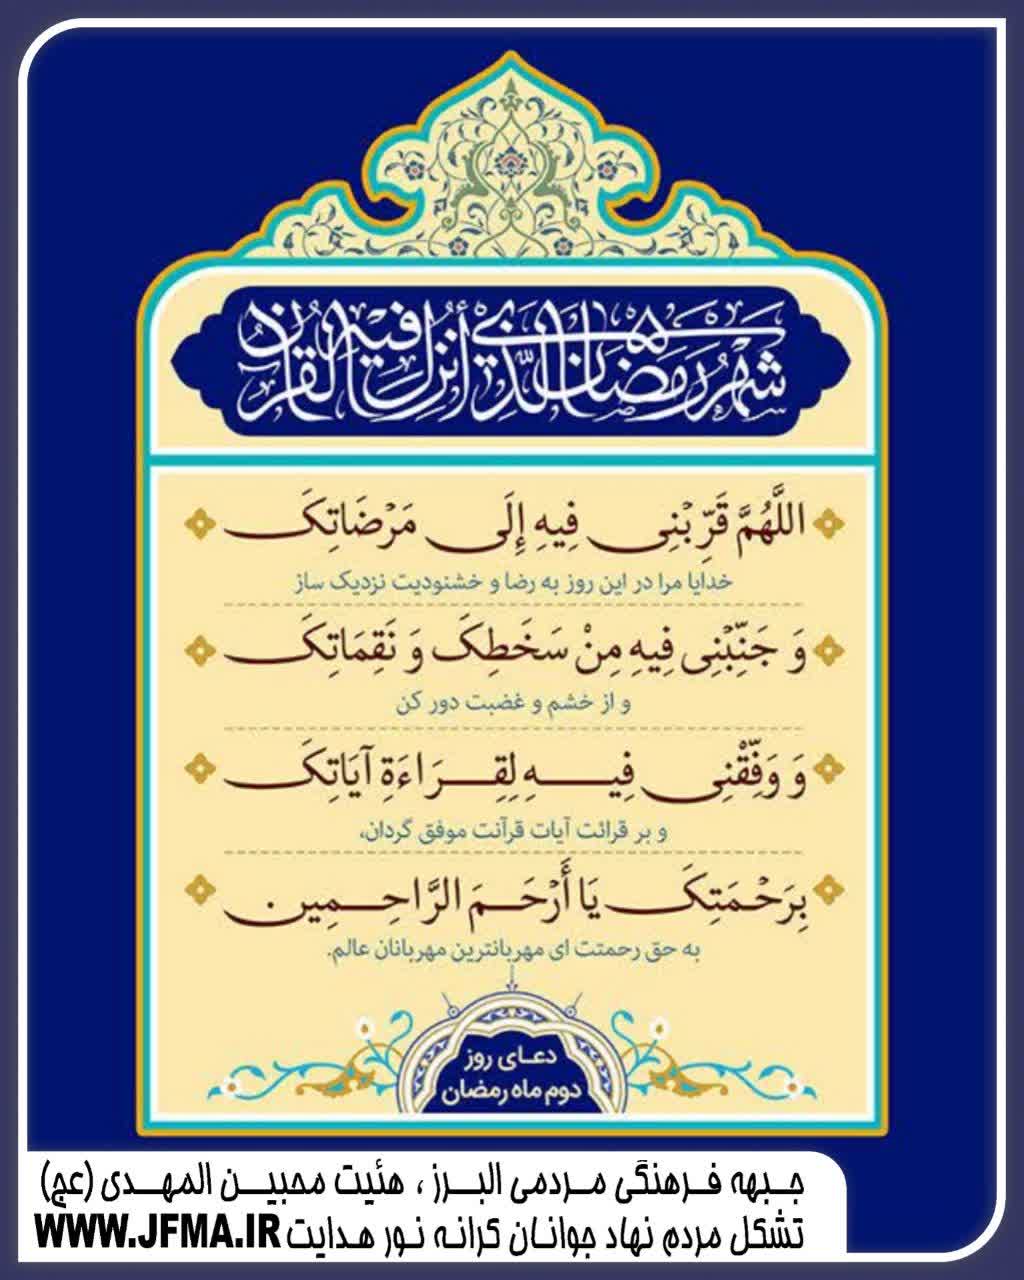 شَهْرُ رَمَضَانَ الَّذِي أُنْزِلَ فِيهِ الْقُرْآنُ
اللَّهُمَّ قَرِّبْنِی فِیهِ إِلَی مَرْضَاتِکَ
خدایا مرا در این روز به رضا و خشنودیت نزدیک ساز
وَ جَنِّبْنِی فِیهِ مِنْ سَخَطِکَ وَ نَقِمَاتِکَ
و از خشم و غضبت دور کن
وَ وَفِّقْنِی فِیهِ لِقِرَاءَةِ آیَاتِکَ
و بر قرائت آیات قرآنت موفق گردان،
بِرَحْمَتِکَ یَا أَرْحَمَ الرَّاحِمِین.
به حق رحمتت ای مهربانترین مهربانان عالم.
دعای روز
دوم ماه رمضان
جبهه فرهنگی مردمی البرز ، هئیت محبین المهدی (عج)
تشکل مردم نهاد جوانان کرانه نور هدایت WWW.JFMA.IR